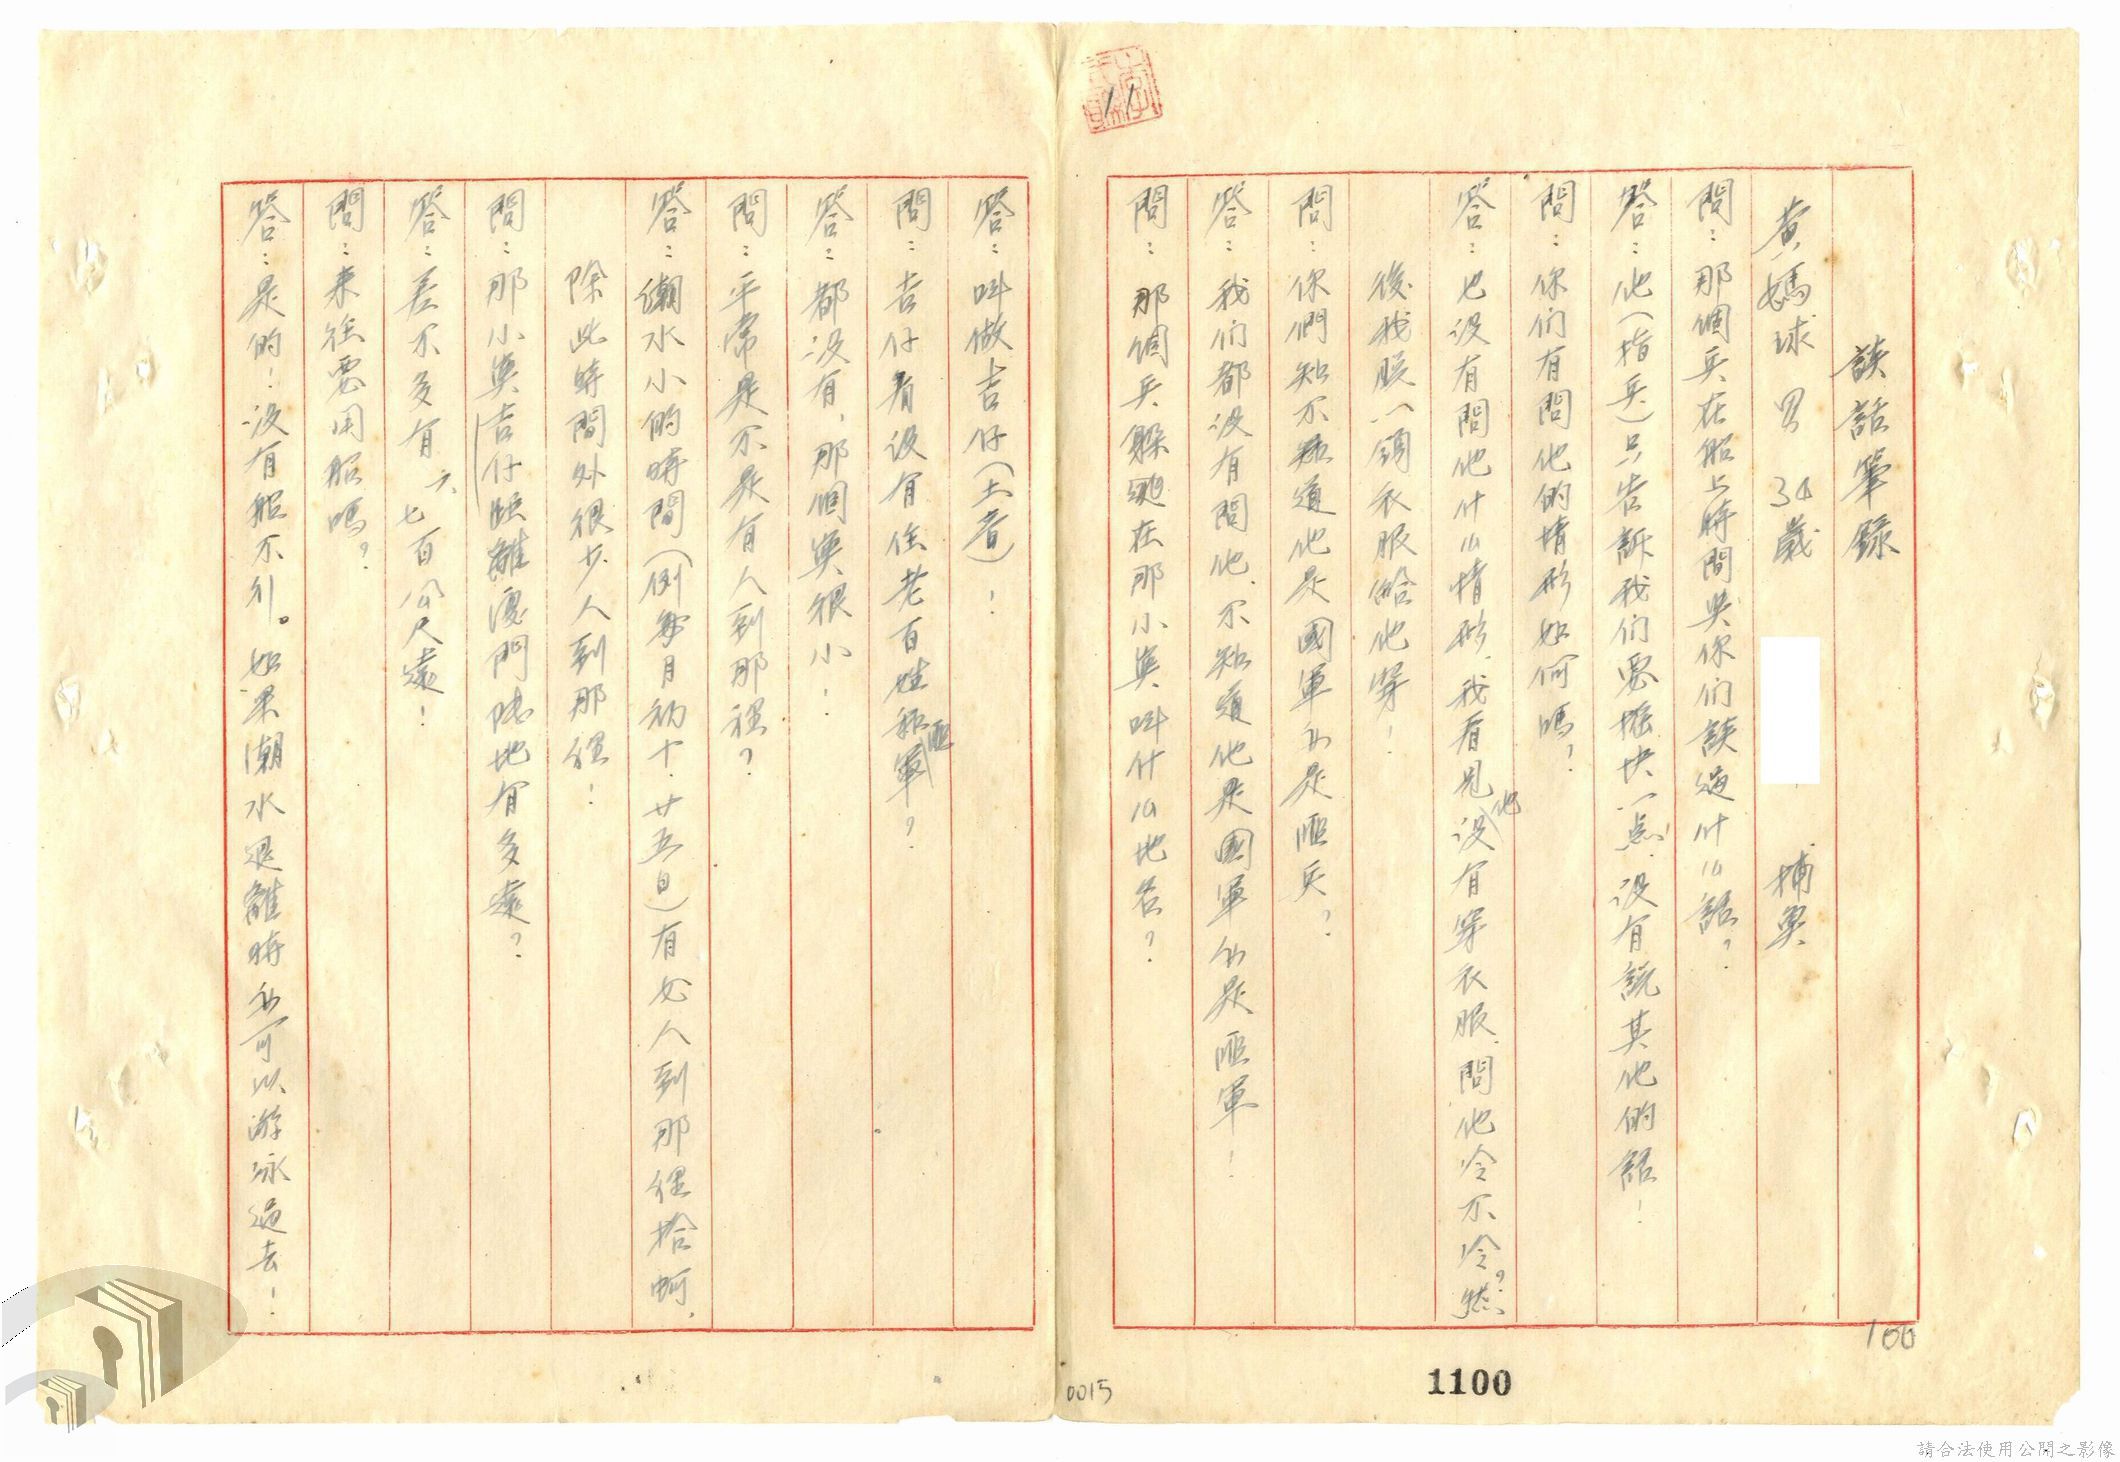 談話筆錄
黃媽球 男 34歲 捕魚
問：那個兵在船上時間與你们談過什么話？
答：他（指兵）只告訴我们要搖快一点．没有說其他的話！
問：你们有問他的情形如何嗎？
答：也没有問他什么情形．我看見他没有穿衣服．問他冷不冷？然
後我脫一領衣服給他穿！
問：你們知不知道他是國軍或是匪兵？
答：我们都没有問他．不知道他是國軍或是匪軍！
問：那個兵躲避在那小嶼叫什么地名？
答：叫做吉仔（土音）！
問：吉仔有没有住老百姓和匪軍？
答：都没有，那個嶼很小！
問：平常是不是有人到那裡？
答：潮水小的時間（例每月初十．廿五日）有女人到那裡拾蚵，
除此時間外很少人到那裡！
問：那小嶼吉仔距離廈門陸地有多遠？
答：差不多有六、七百公尺遠！
問：來往要用船嗎？
答：是的！没有船不行。如果潮水退離時亦可以游泳過去！
11
100
1100
0015
請合法使用公開之影像